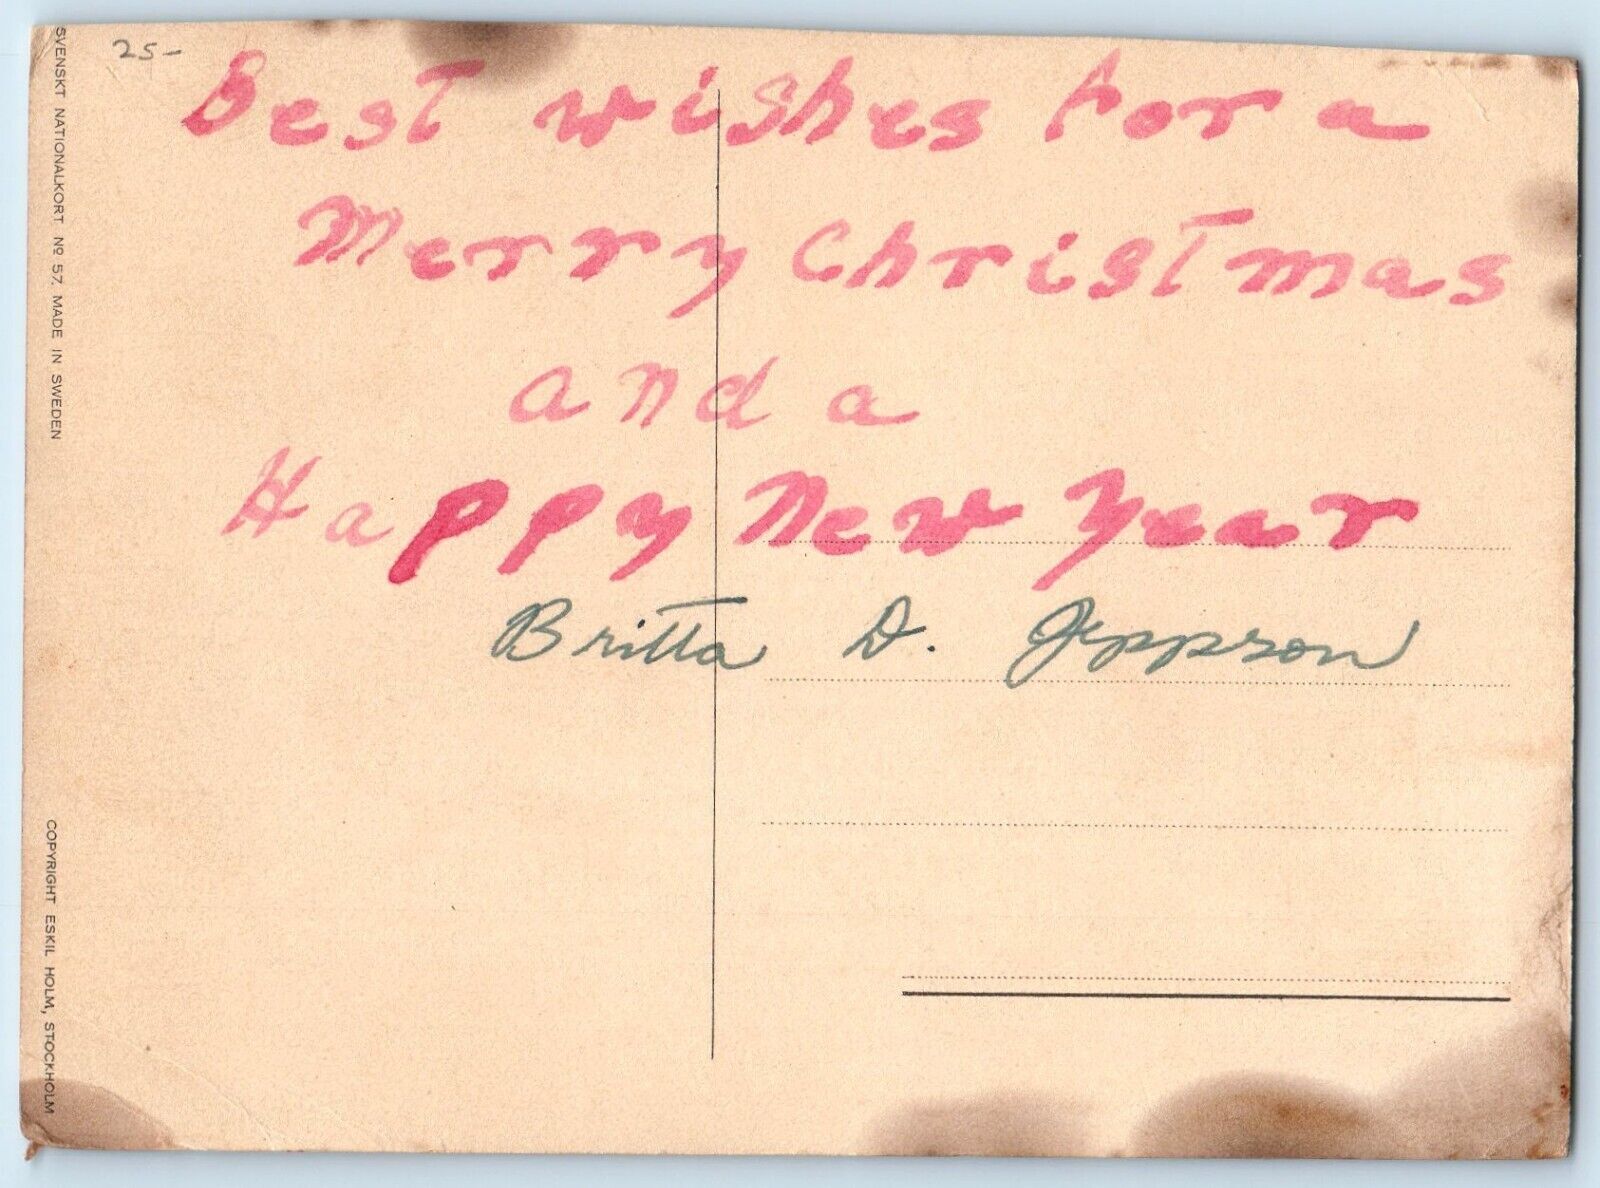 25-
Best wishes for a
Merry Christmas
and a
Happy New Year
Britta D. Jeppson
SVENSKT NATIONALKORT Nº 57. MADE IN SWEDEN
COPYRIGHT ESKIL HOLM, STOCKHOLM